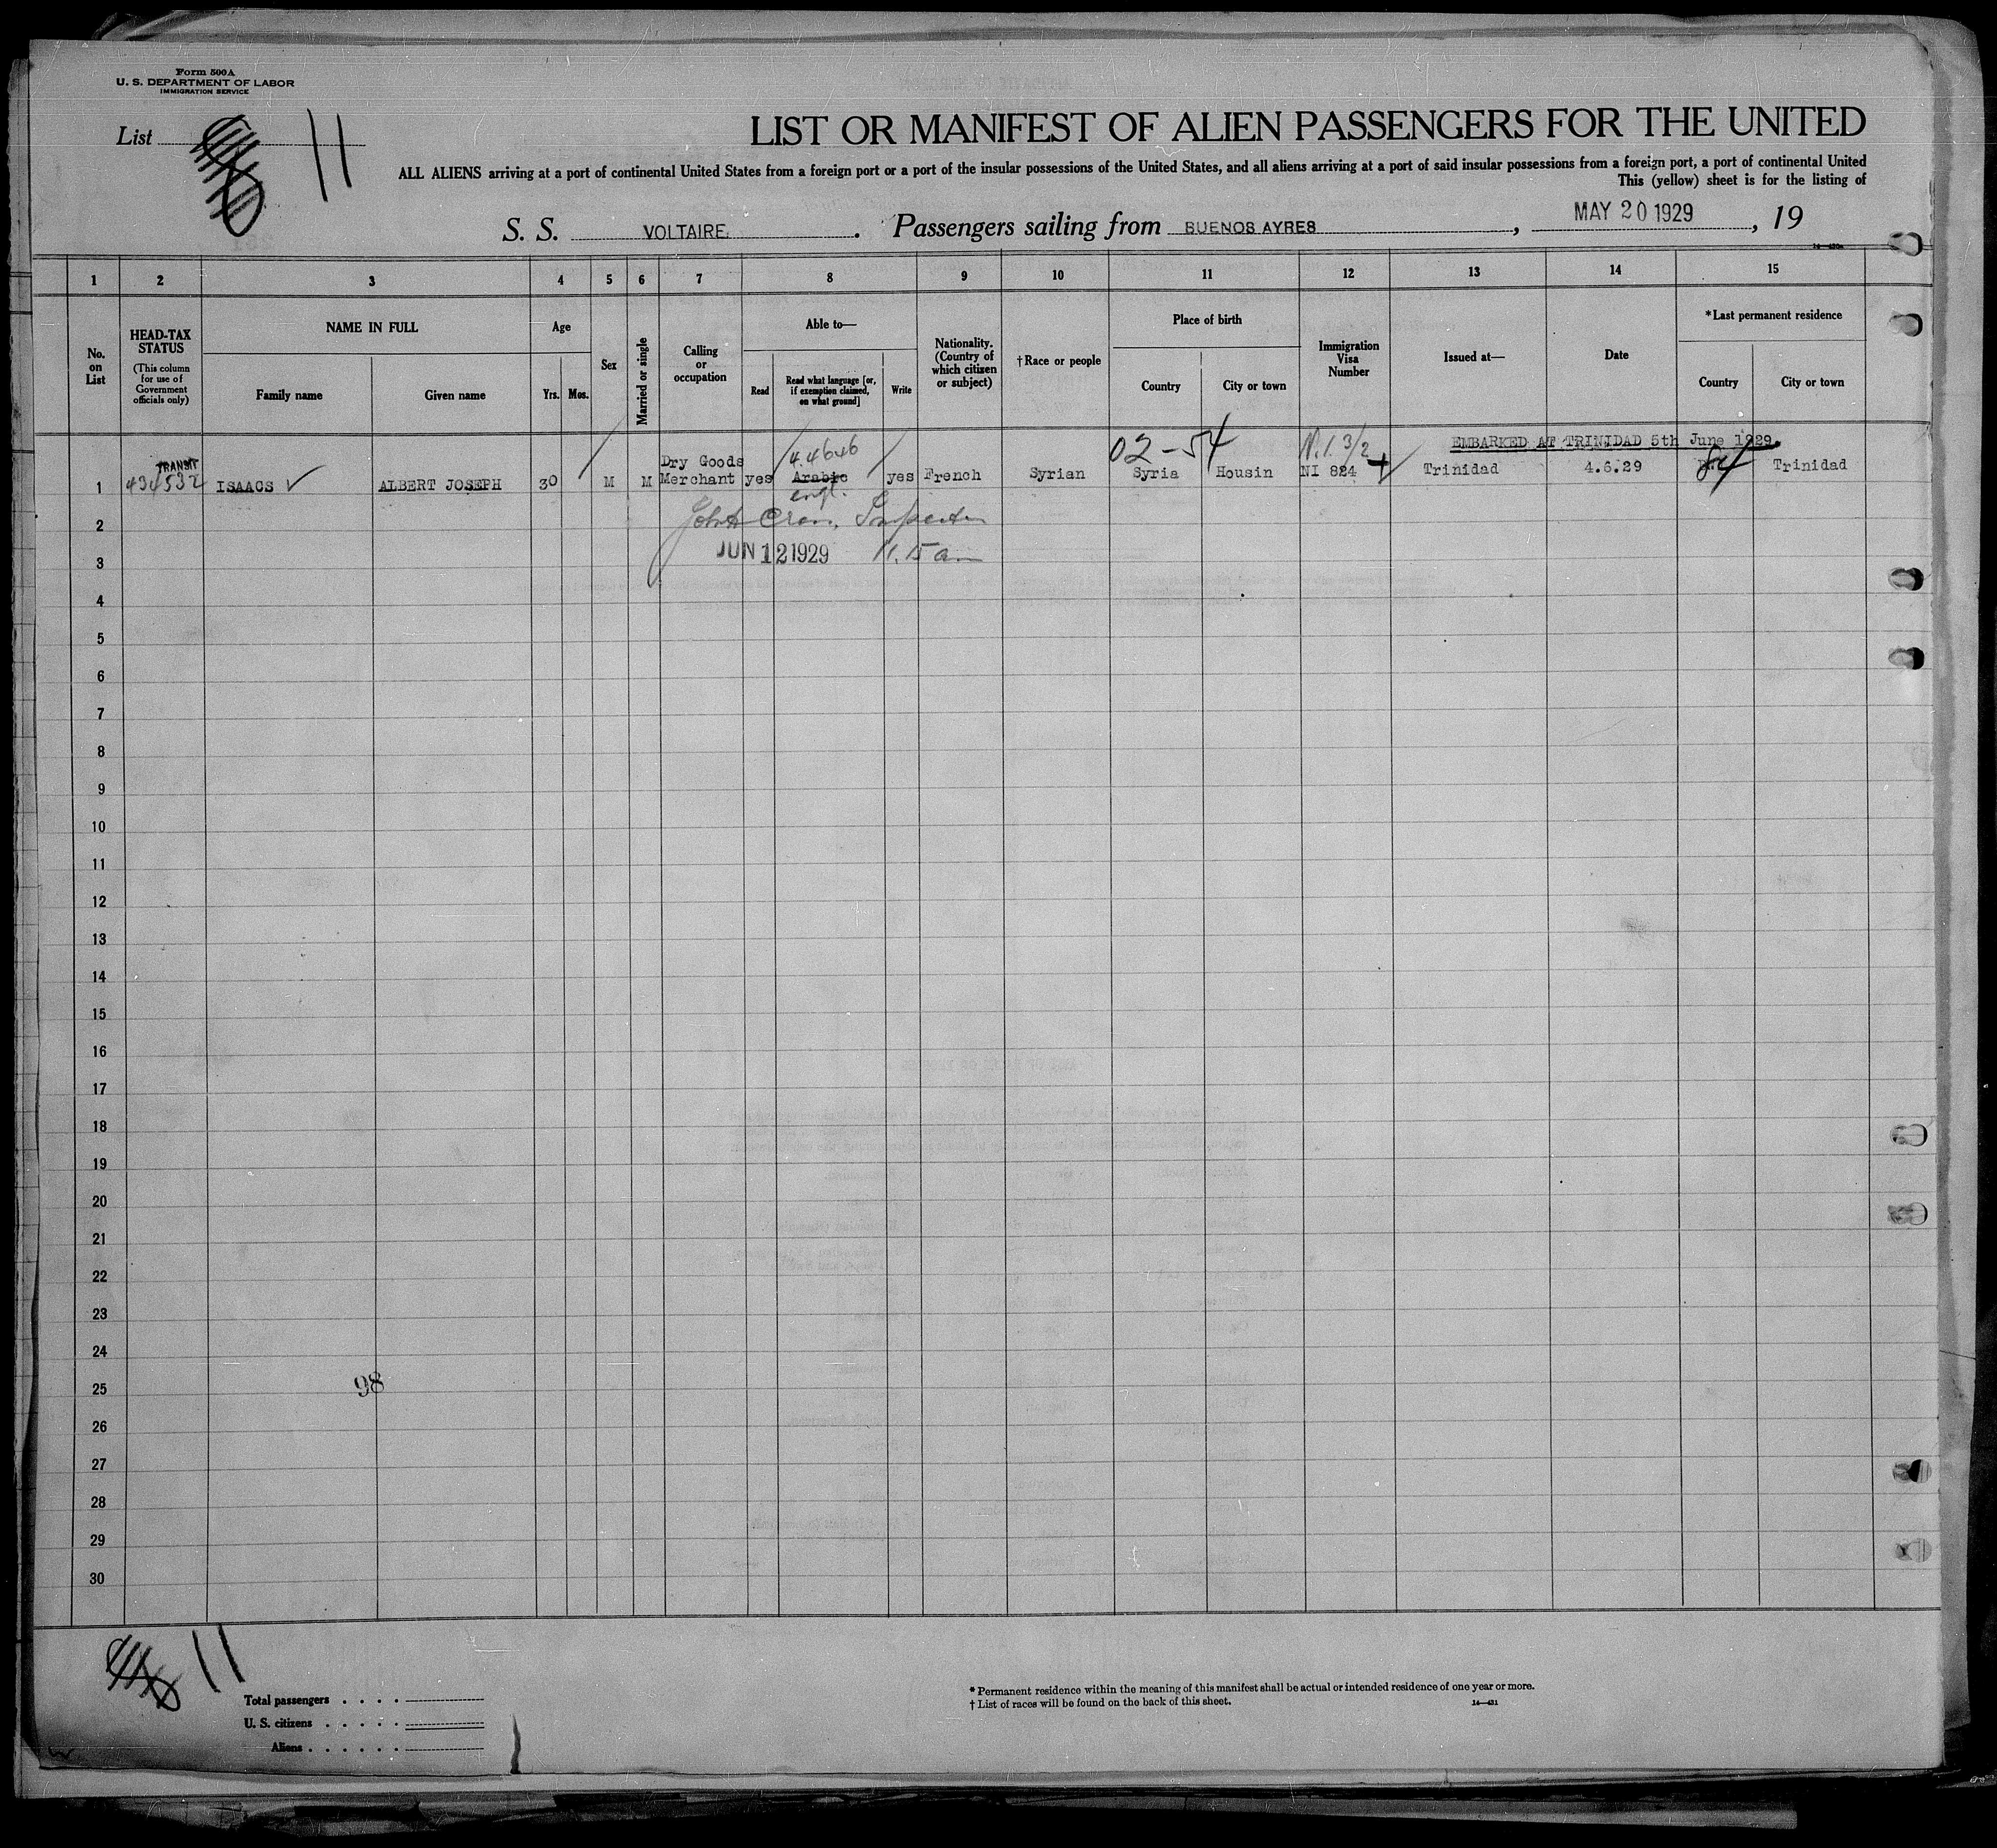 Form 500 A
U. S. DEPARTMENT OF LABOR
IMMIGRATION SERVICE
List 11
LIST OR MANIFEST OF ALIEN PASSENGERS FOR THE UNITED
ALL ALIENS arriving at a port of continental United States from a foreign port or a port of the insular possessions of the United States, and all aliens arriving at a port of said insular possessions from a foreign port, a port of continental United
This (yellow) sheet is for the listing of
S. S. VOLTAIRE. Passengers sailing from BUENOS AYRES, MAY 20 1929, 19
1 2 3 4 5 6 7 8 9 10 11 12 13 14 15
No. on List
HEAD-TAX STATUS
(This column for use of Government officials only)
NAME IN FULL
Family name
Given name
Age
Yrs.
Mos.
Sex
Married or single
Calling or occupation
Able to—
Read
Read what language [or, if exemption claimed, on what ground]
Write
Nationality. (Country of which citizen or subject)
†Race or people
Place of birth
Country
City or town
Immigration Visa Number
Issued at—
Date
*Last permanent residence
Country
City or town
02-54
N.I. 3/2
EMBARKED AT TRINIDAD 5th June 1929.
TRANSIT
Dry Goods
1 ISAACS ✓ ALBERT JOSEPH 30 M M Merchant yes Arabic yes French Syrian Syria Housin NI 824 Trinidad 4.6.29 Trinidad
engl.
2 Inspector
3 JUN 12 1929 11.15 am
4
5
6
7
8
9
10
11
12
13
14
15
16
17
18
19
20
21
22
23
24
25 98
26
27
28
29
30
11
Total passengers . . . .
U. S. citizens . . . . .
Aliens . . . . . .
* Permanent residence within the meaning of this manifest shall be actual or intended residence of one year or more.
† List of races will be found on the back of this sheet.
14—431